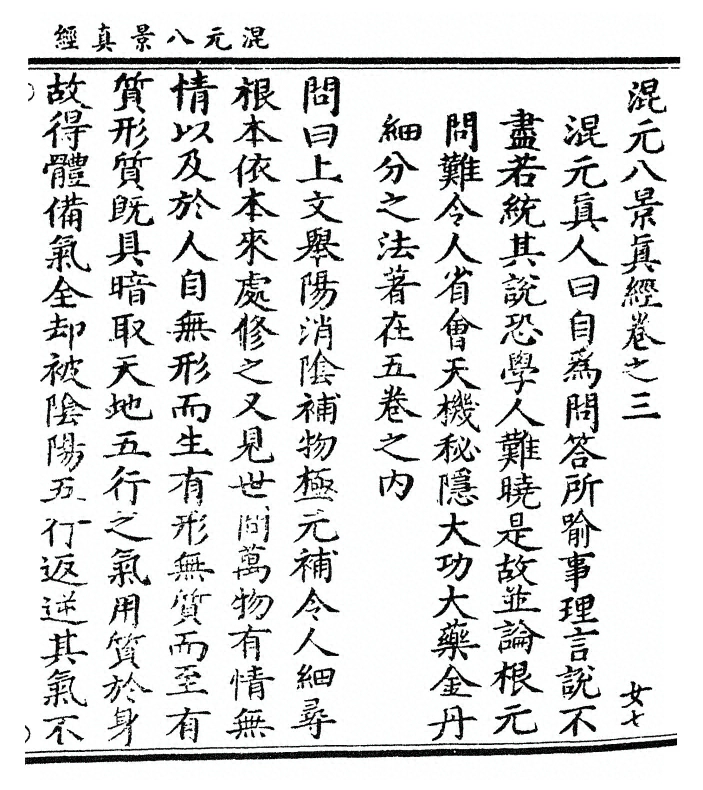 混元八景真經
混元八景真經卷之三
女七
混元眞人曰自爲問答所喻事理言說不
盡若統其說恐學人難曉是故並論根元
問難令人省會天機秘隱大功大藥金丹
細分之法著在五卷之內
問曰上文舉陽消陰補物極元補令人細尋
根本依本來處修之又見世間萬物有情無
情以及於人自無形而生有形無質而至有
質形質既具暗取天地五行之氣用質於身
故得體備氣全却被陰陽五行返逆其氣不